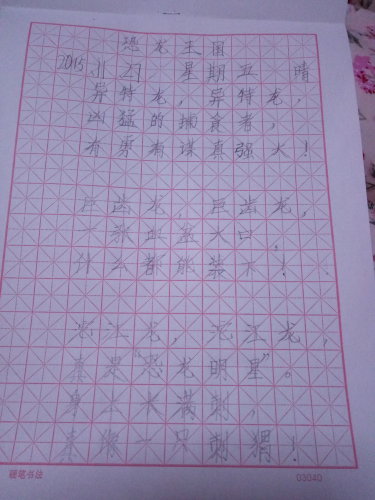 恐龙王国
2015.11.27 星期五 晴
异特龙，异特龙，
凶猛的捕食者，
有勇有谋真强大！
巨齿龙，巨齿龙，
一张血盆大口，
什么都能装下！
沱江龙，沱江龙，
真是“恐龙明星”。
身上长满刺，
真像一只刺猬！
硬笔书法 03040